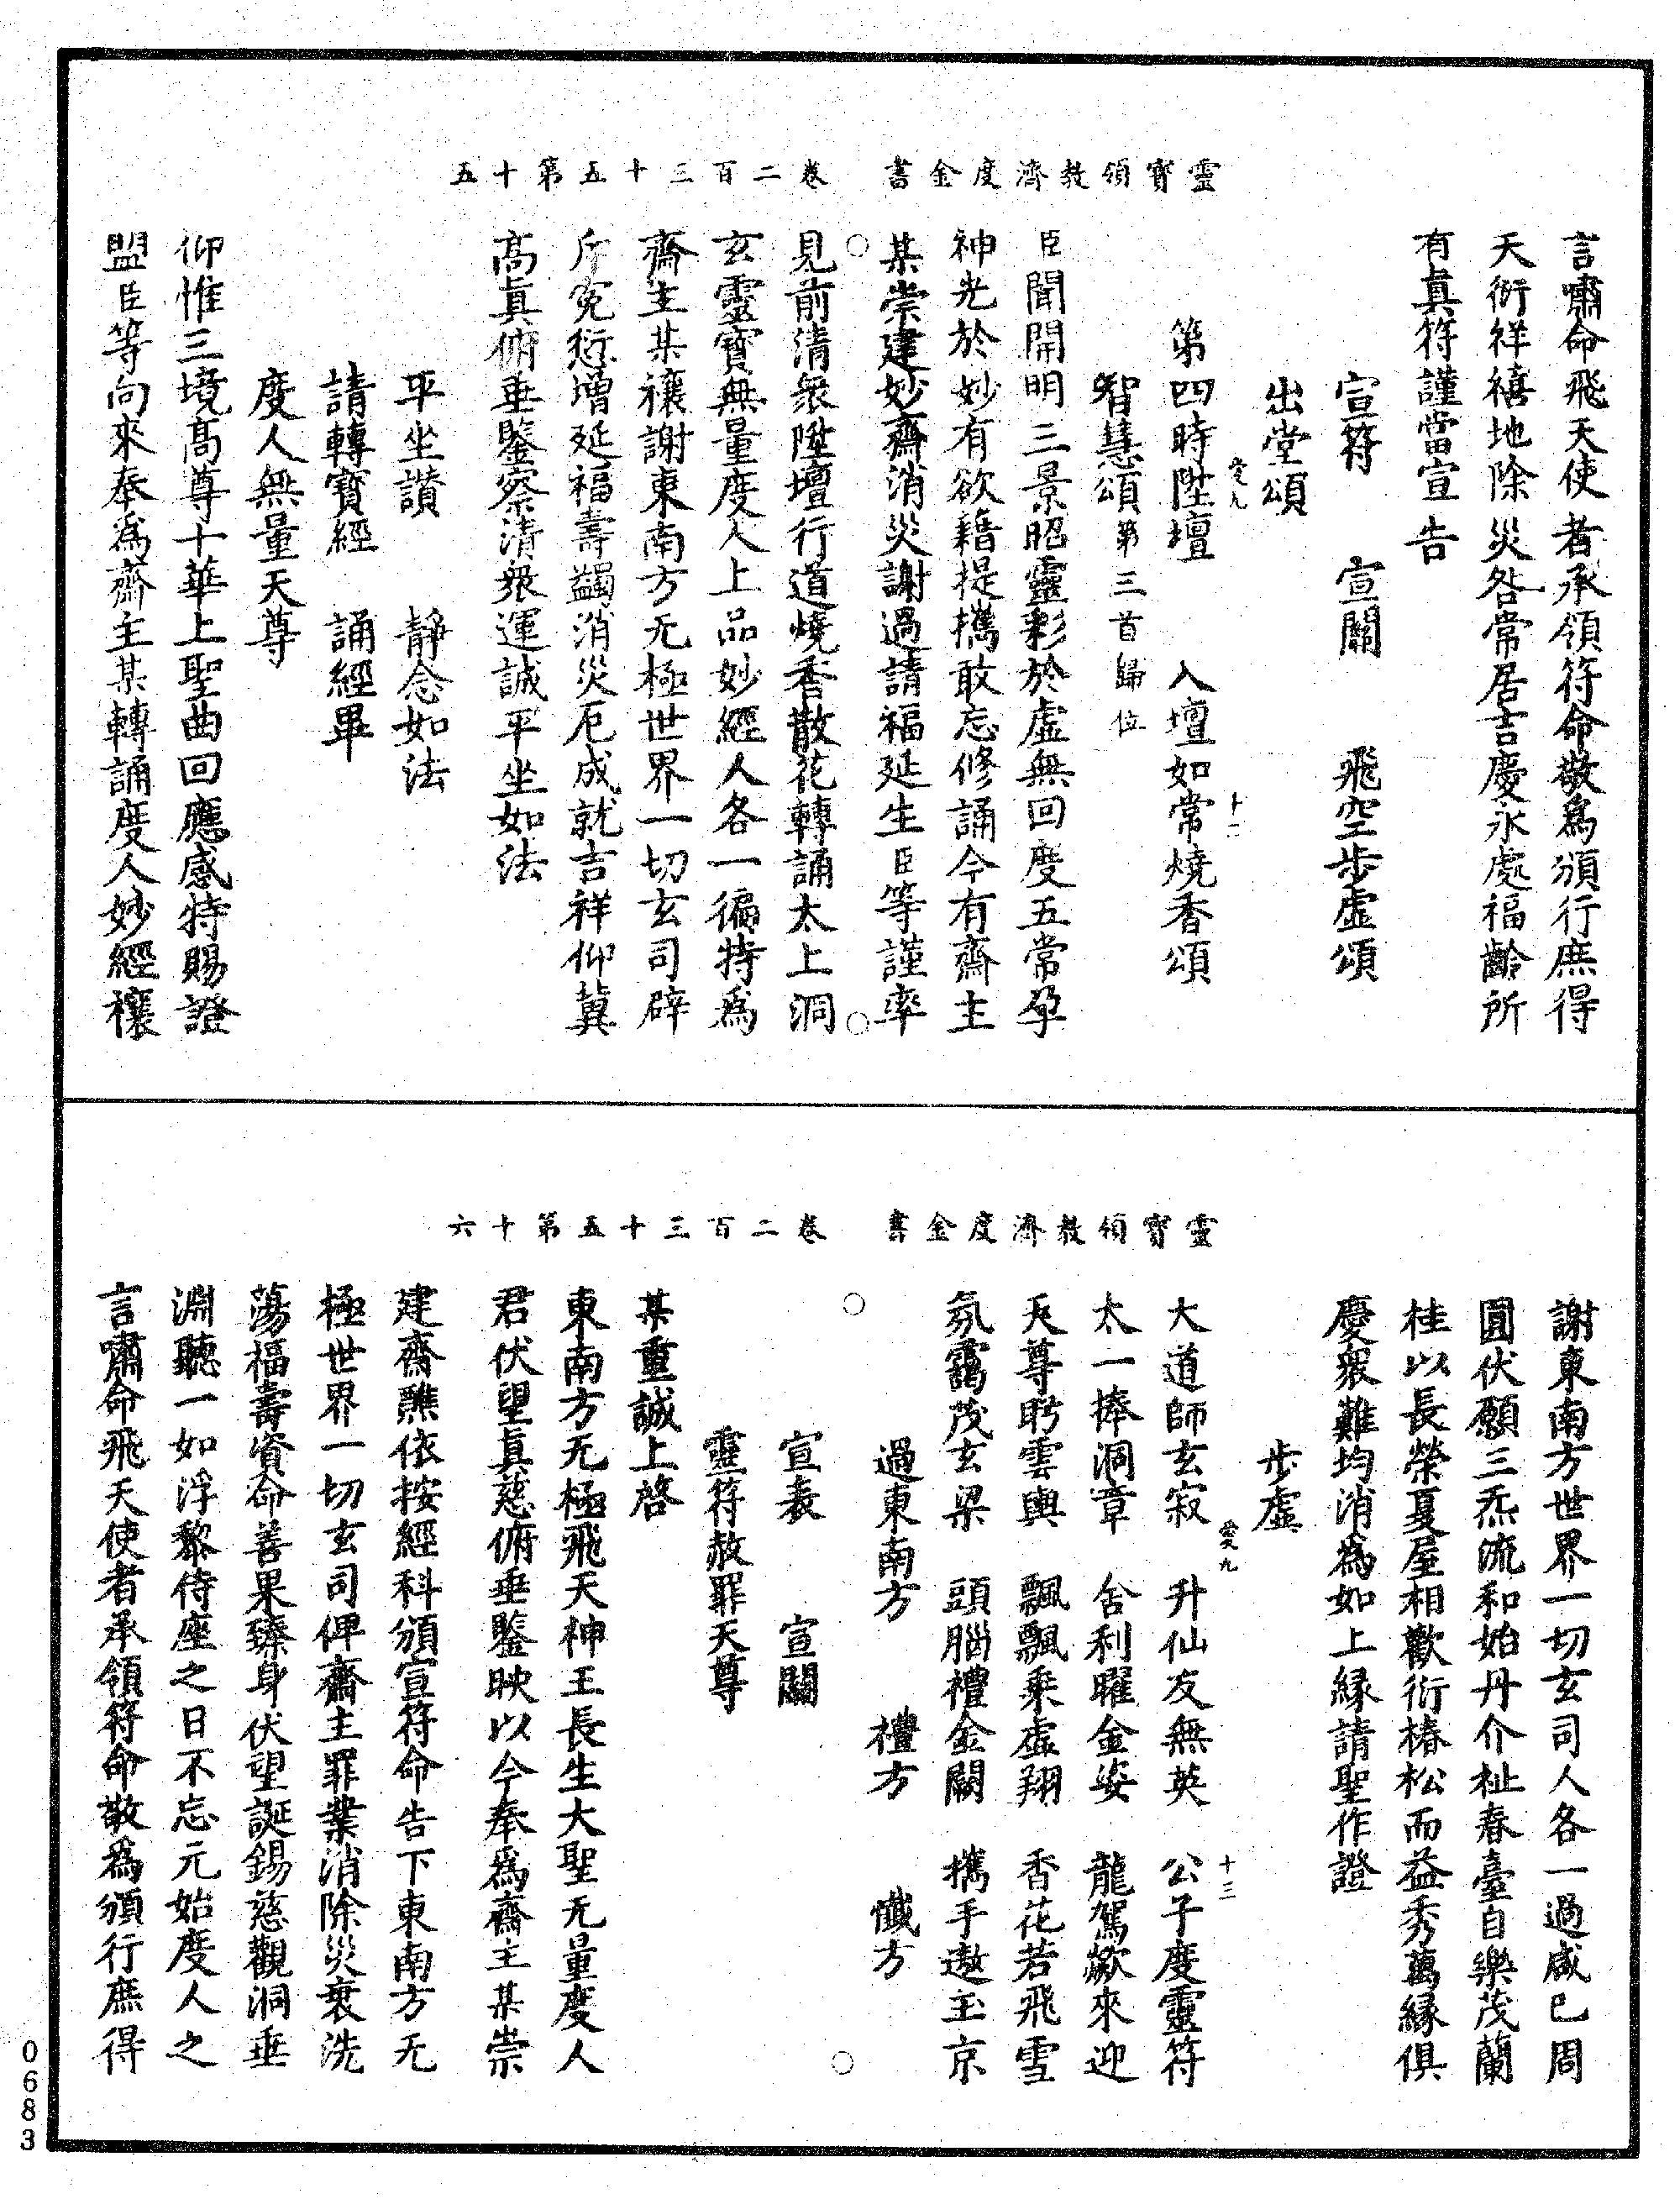 靈寶領教濟度金書　卷二百三十五第十五
言嘯命飛天使者承領符命敬爲頒行庶得
天衍祥禧地除災咎常居吉慶永處福齡所
有眞符謹當宣告
宣符　宣關　飛空步虛頌
出堂頌
第四時陞壇　入壇如常燒香頌
愛九　十二
智慧頌第三首歸位
臣聞開明三景昭靈彩於虛無回度五常孕
神光於妙有欲藉提攜敢忘修誦今有齋主
某崇建妙齋消災謝過請福延生臣等謹率
見前清衆陞壇行道燒香散花轉誦太上洞
玄靈寶無量度人上品妙經人各一徧特爲
齋主某禳謝東南方无極世界一切玄司辟
斥冤愆增延福壽蠲消災厄成就吉祥仰冀
高眞俯垂鑒察清衆運誠平坐如法
平坐讃　靜念如法
請轉寶經　誦經畢
度人無量天尊
仰惟三境高尊十華上聖曲回應感特賜證
盟臣等向來奉爲齋主某轉誦度人妙經禳
靈寶領教濟度金書　卷二百三十五第十六
謝東南方世界一切玄司人各一過咸已周
圓伏願三炁流和始丹介祉春臺自樂茂蘭
桂以長榮夏屋相歡衍椿松而益秀萬緣俱
慶衆難均消爲如上緣請聖作證
步虛
愛九　十三
大道師玄寂　升仙友無英　公子度靈符
太一捧洞章　舍利曜金姿　龍駕欻來迎
天尊盻雲輿　飄飄乘虛翔　香花若飛雪
氛靄茂玄梁　頭腦禮金闕　攜手遨玉京
過東南方　禮方　懺方
宣表　宣關
靈符赦罪天尊
某重誠上啓
東南方无極飛天神王長生大聖无量度人
君伏望眞慈俯垂鑒映以今奉爲齋主某崇
建齋醮依按經科頒宣符命告下東南方无
極世界一切玄司俾齋主罪業消除災衰洗
蕩福壽資命善果臻身伏望誕錫慈觀洞垂
淵聽一如浮黎侍座之日不忘元始度人之
言嘯命飛天使者承領符命敬爲頒行庶得
0683